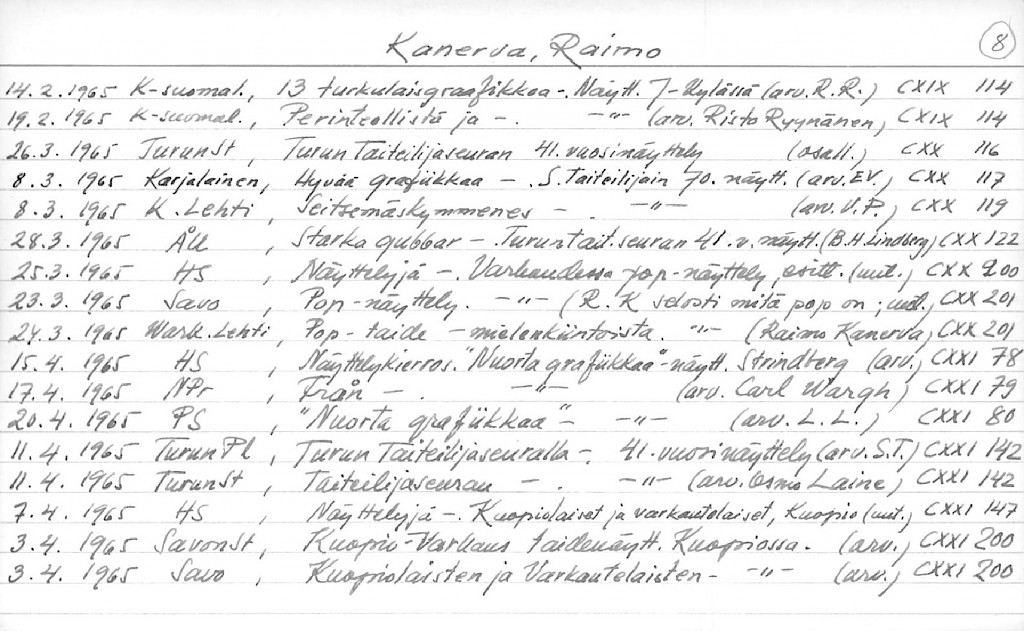 Kanerva, Raimo 8
14.2.1965 K-suomal., 13 turkulaisgraafikkoa -. Näytt. J-kylässä (arv. R.R.) CXIX 114
19.2.1965 K-suomal., Perinteellistä ja -. -"- (arv. Risto Ryynänen) CXIX 114
26.3.1965 TurunSt, Turun Taiteilijaseuran 41. vuosinäyttely (osall.) CXX 116
8.3.1965 Karjalainen, Hyvää grafiikkaa -. S. Taiteilijain 70. näytt. (arv. EV.) CXX 117
8.3.1965 K. Lehti, Seitsemäskymmenes -. -"- (arv. V.P.) CXX 119
28.3.1965 ÅU, Starka gubbar -. Turun tait.seuran 41. v. näytt. (B.H. Lindberg) CXX 122
25.3.1965 HS, Näyttelyjä -. Varkaudessa pop-näyttely, esitt. (uut.) CXX 200
23.3.1965 Savo, Pop-näyttely. -"- (R.K selosti mitä pop on; uut.) CXX 201
24.3.1965 Wark. Lehti, Pop-taide - mielenkiintoista. -"- (Raimo Kanerva) CXX 201
15.4.1965 HS, Näyttelykierros. "Nuorta grafiikkaa"-näytt. Strindberg (arv.) CXXI 78
17.4.1965 NPr, Från -. -"- (arv. Carl Wargh) CXXI 79
20.4.1965 PS, "Nuorta grafiikkaa" -"- (arv. L.L.) CXXI 80
11.4.1965 TurunPl, Turun Taiteilijaseuralla -. 41. vuosinäyttely (arv. S.T.) CXXI 142
11.4.1965 TurunSt, Taiteilijaseuran -. -"- (arv. Osmo Laine) CXXI 142
7.4.1965 HS, Näyttelyjä -. Kuopiolaiset ja varkautelaiset, Kuopio (uut.) CXXI 147
3.4.1965 SavonSt, Kuopio-Varkaus taidenäytt. Kuopiossa. (arv.) CXXI 200
3.4.1965 Savo, Kuopiolaisten ja Varkautelaisten - -"- (arv.) CXXI 200